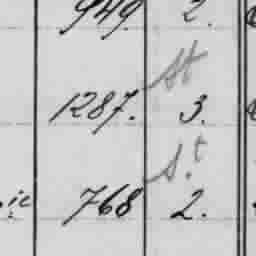 949. 2.
St
1287. 3.
S.t
ic 768 2.